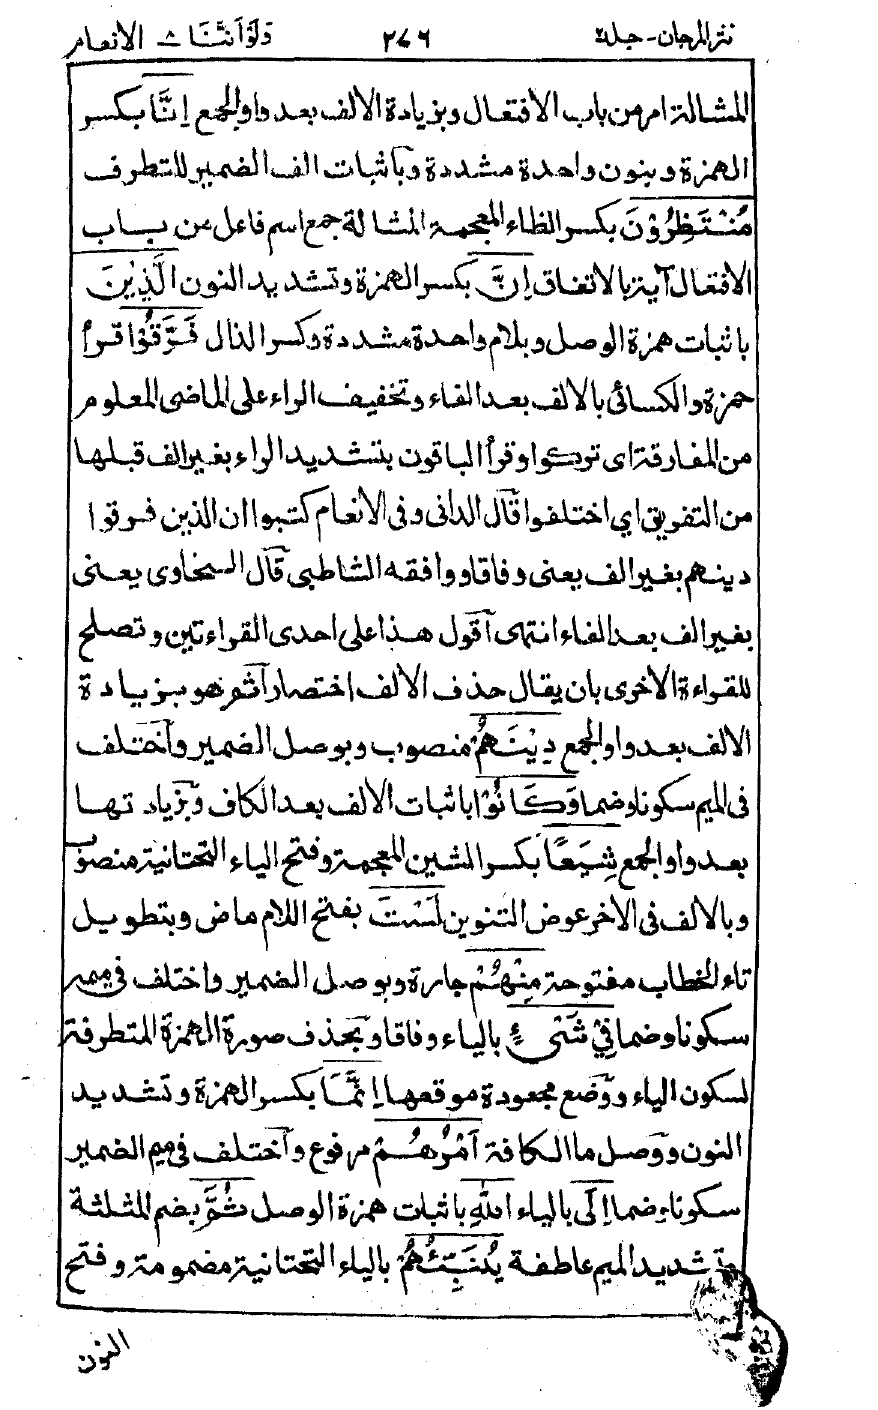 نثر المرجان - جلد ٢
٢٧٦
ولو اننا ٨ الانعام
المشالة امر من باب الافتعال وبزيادة الالف بعد واو الجمع اِنَّا بكسر
الهمزة وبنون واحدة مشددة وباثبات الف الضمير للتطرف
مُنْتَظِرُوْنَ بكسر الظاء المعجمة المشالة جمع اسم فاعل من باب
الافتعال آية بالاتفاق اِنَّ بكسر الهمزة وتشديد النون الَّذِيْنَ
باثبات همزة الوصل وبلام واحدة مشددة وكسر الذال فَرَّقُوْا قرأ
حمزة والكسائى بالالف بعد الفاء وتخفيف الراء على الماضى المعلوم
من المفارقة اى تركوا وقرأ الباقون بتشديد الراء بغير الف قبلها
من التفريق اي اختلفوا قال الدانى وفى الانعام كتبوا ان الذين فرقوا
دينهم بغير الف يعنى وفاقا ووافقه الشاطبى قال السخاوى يعنى
بغير الف بعد الفاء انتهى اقول هذا على احدى القراءتين وتصلح
للقراءة الاخرى بان يقال حذف الالف اختصارا ثم هو بزيادة
الالف بعد واو الجمع دِيْنَهُمْ منصوب وبوصل الضمير واختلف
فى الميم سكونا وضما وَكَانُوْا باثبات الالف بعد الكاف وبزيادتها
بعد واو الجمع شِيَعًا بكسر الشين المعجمة وفتح الياء التحتانية منصوب
وبالالف فى الاخر عوض التنوين لَسْتَ بفتح اللام ماض وبتطويل
تاء الخطاب مفتوحة مِنْهُمْ جارة وبوصل الضمير واختلف فى ميمه
سكونا وضما فِيْ شَىْءٍ بالياء وفاقا وبحذف صورة الهمزة المتطرفة
لسكون الياء ووضع مجعودة موقعها اِنَّمَا بكسر الهمزة وتشديد
النون ووصل ما الكافة اَمْرُهُمْ مرفوع واختلف فى ميم الضمير
سكونا وضما اِلَى بالياء اللهِ باثبات همزة الوصل ثُمَّ بضم المثلثة
وتشديد الميم عاطفة يُنَبِّئُهُمْ بالياء التحتانية مضمومة وفتح
النون